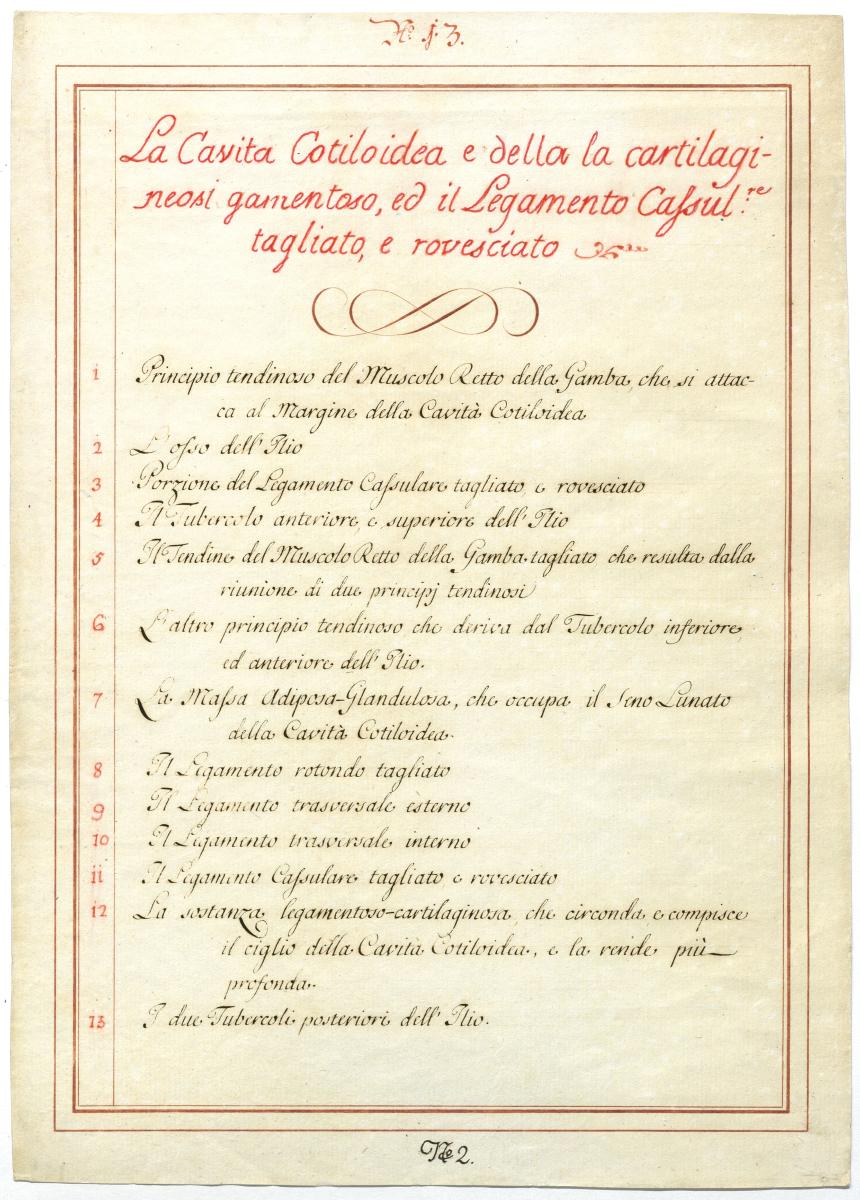 N.º 13.
La Cavita Cotiloidea e della la cartilagi-
neosi gamentoso, ed il Legamento Caſsul.re
tagliato, e rovesciato
1 Principio tendinoso del Muscolo Retto della Gamba, che si attac-
ca al Margine della Cavità Cotiloidea
2 L'oſso dell'Ilio
3 Porzione del Legamento Caſsulare tagliato, e rovesciato
4 Il Tubercolo anteriore, e superiore dell'Ilio
5 Il Tendine del Muscolo Retto della Gamba tagliato che resulta dalla
riunione di due principj tendinosi
6 L'altro principio tendinoso che deriva dal Tubercolo inferiore,
ed anteriore dell'Ilio.
7 La Maſsa Adiposa-Glandulosa, che occupa il Seno Lunato
della Cavità Cotiloidea.
8 Il Legamento rotondo tagliato
9 Il Legamento trasversale esterno
10 Il Legamento trasversale interno
11 Il Legamento Caſsulare tagliato e rovesciato
12 La sostanza legamentoso-cartilaginosa, che circonda e compisce
il ciglio della Cavità Cotiloidea, e la rende più
profonda.
13 I due Tubercoli posteriori dell'Ilio.
Nº 2.